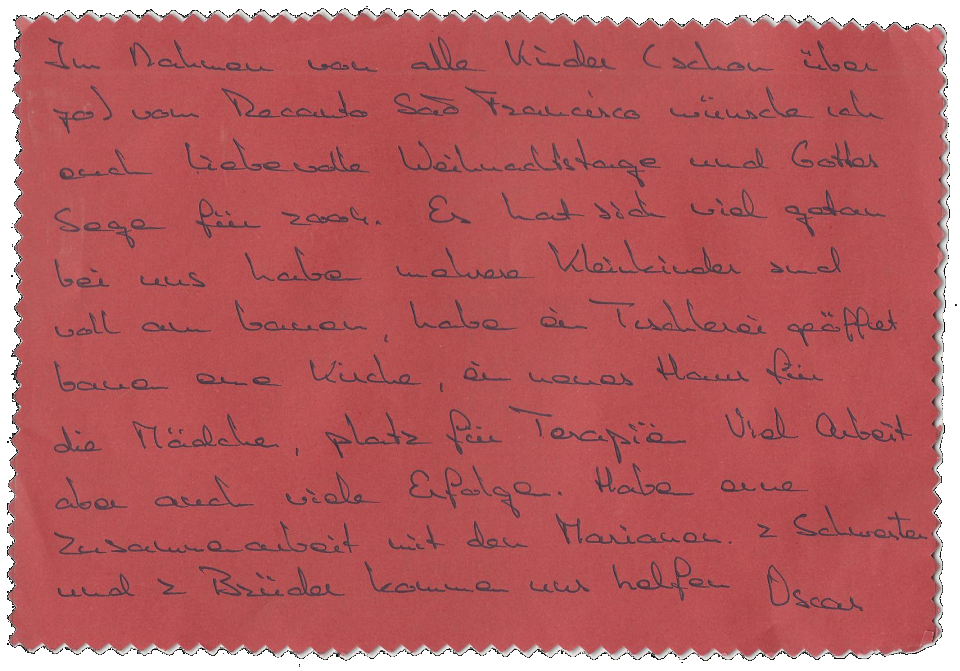 Im Nahmen von alle Kinder (schon über
70) vom Recanto Saõ Francisco wünsche ich
euch liebevolle Weihnachtstage und Gottes
Sege für 2004. Es hat sich viel getan
bei uns habe mehrere Kleinkinder sind
voll am bauen, habe ein Tischlerei geöffnet
baue eine Kirche, ein neues Haus für
die Mädche, platz für Terapië Viel Arbeit
aber auch viele Erfolge. Habe eine
Zusammearbeit mit den Marianer. 2 Schwester
und 2 Brüder komme uns helfen Oscar